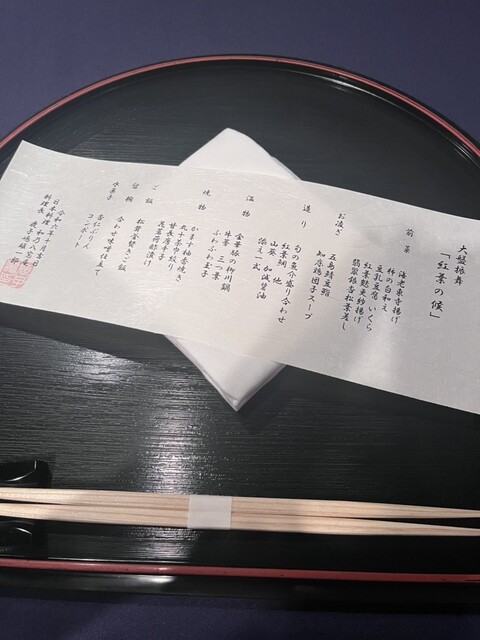 大盤振舞
「紅葉の候」
前菜
海老東寺揚げ
柿の白和え
豆乳豆腐 いくら
紅葉麩素揚げ
翡翠銀杏松葉差し
お凌ぎ
五島鯖豆鮨
知床鶏団子スープ
造り
旬の魚介盛り合わせ
紅葉鯛 他
山葵 加減醤油
添え一式
温物
金華豚の柳川鍋
牛蒡 三つ葉
ふわふわ玉子
焼物
かます柚香焼き
丸十茶巾絞り
甘長唐辛子
茗荷甘酢漬け
ご飯
松茸釜焚きご飯
留椀
合わせ味噌仕立て
水菓子
杏仁ぷりん
コンポート
令和六年十月吉日
日本料理 和乃八景
料理長